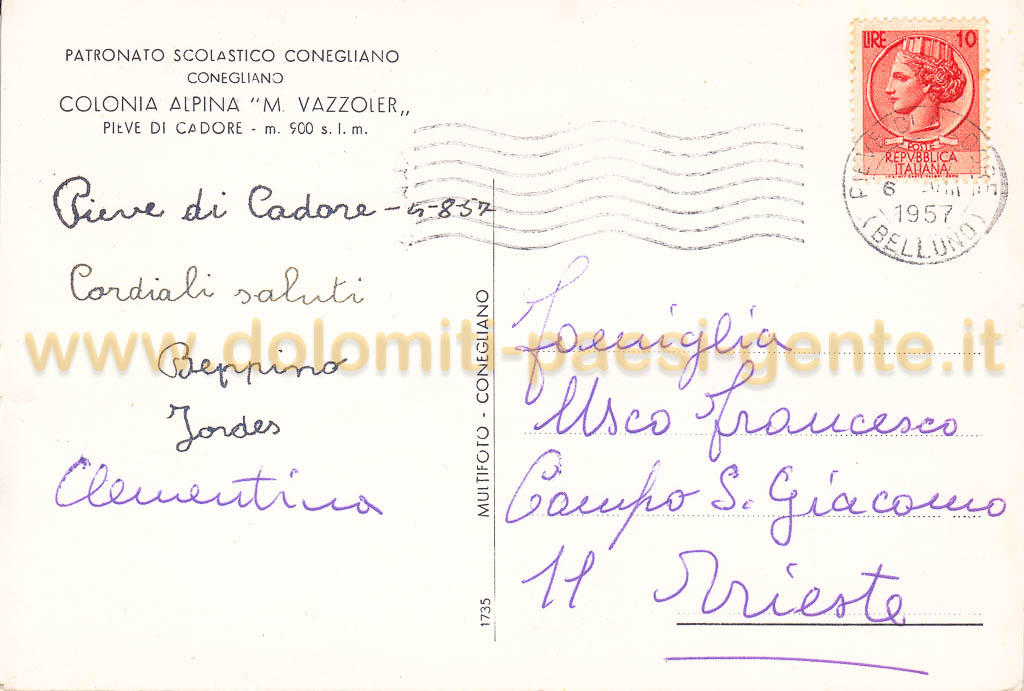 PATRONATO SCOLASTICO CONEGLIANO
CONEGLIANO
COLONIA ALPINA "M. VAZZOLER„
PIEVE DI CADORE - m. 900 s. l. m.
LIRE 10
POSTE
REPVBBLICA
ITALIANA
PIEVE DI CADORE
6 VIII
1957
(BELLUNO)
Pieve di Cadore - 5-8-57
Cordiali saluti
Beppino
Jordes
Clementina
MULTIFOTO - CONEGLIANO
1735
www.dolomiti-paesigente.it
Famiglia
Usco Francesco
Campo S. Giacomo
11 Trieste